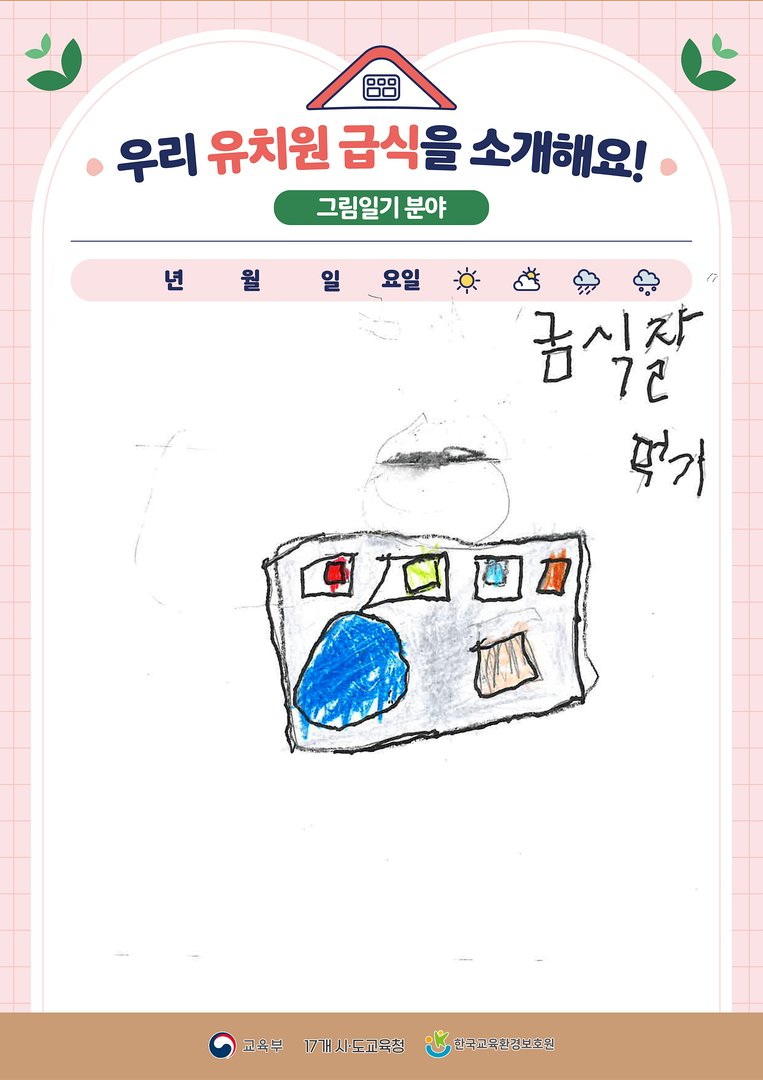 우리 유치원 급식을 소개해요!
그림일기 분야
년 월 일 요일
급식잘
먹기
교육부 17개 시·도교육청 한국교육환경보호원